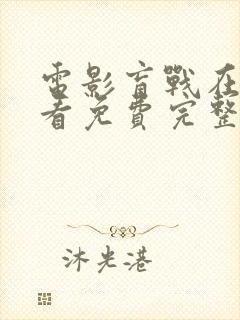 電影盲戰在
看免費完整
沐光港